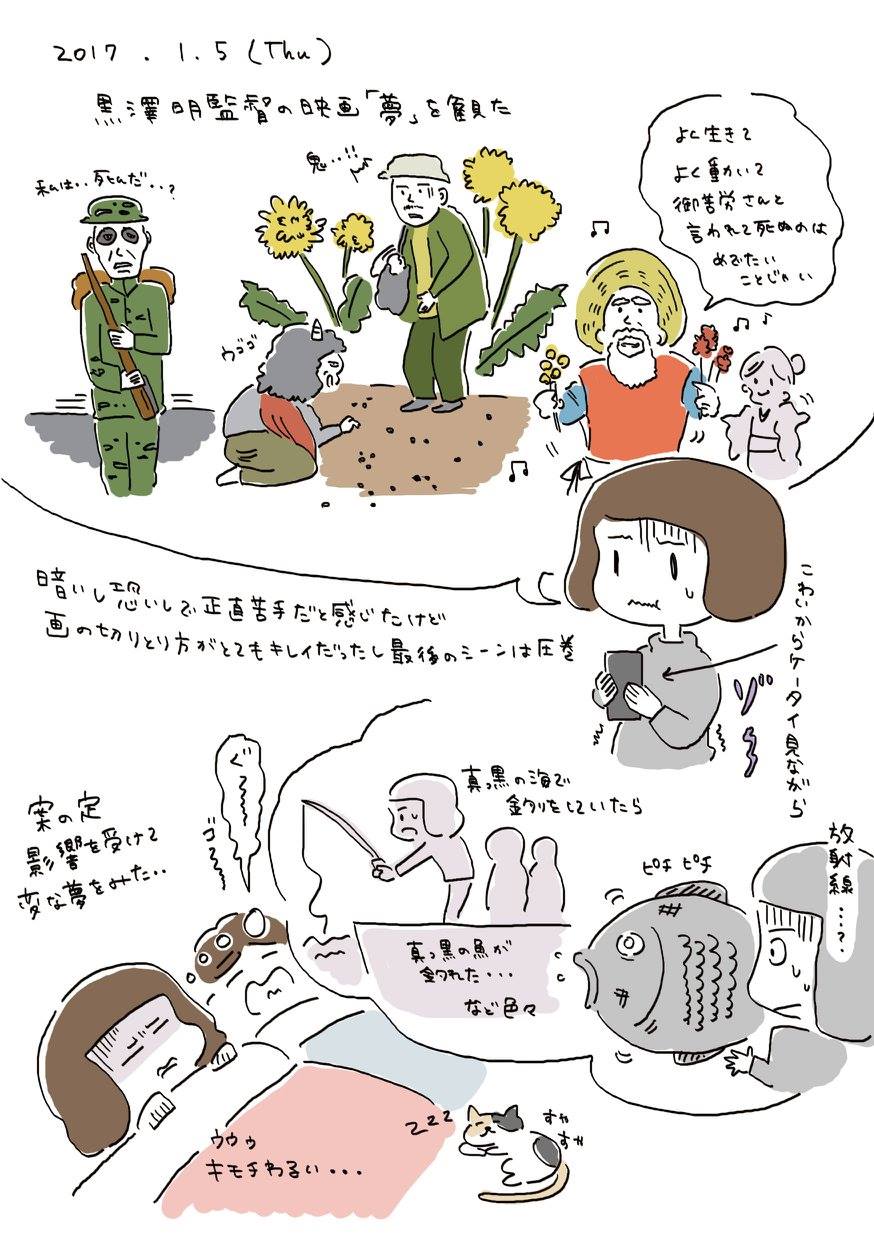 2017.1.5(Thu)
黒澤明監督の映画「夢」を観た
私は‥死んだ‥?
鬼…!!
ウゴゴ
よく生きて
よく動いて
御苦労さんと
言われて死ぬのは
めでたい
ことじゃい
暗いし恐いしで正直苦手だと感じたけど
画の切りとり方がとてもキレイだったし最後のシーンは圧巻
こわいからケータイ見ながら
ゾ〜
案の定
影響を受けて
変な夢をみた‥
ぐ〜
ゴ〜
真っ黒の海で
釣りをしていたら
真っ黒の魚が
釣れた・・・
など色々
ピチピチ
放射線…?
ウゥゥ
キモチわるい・・・
zzz
すや
すや